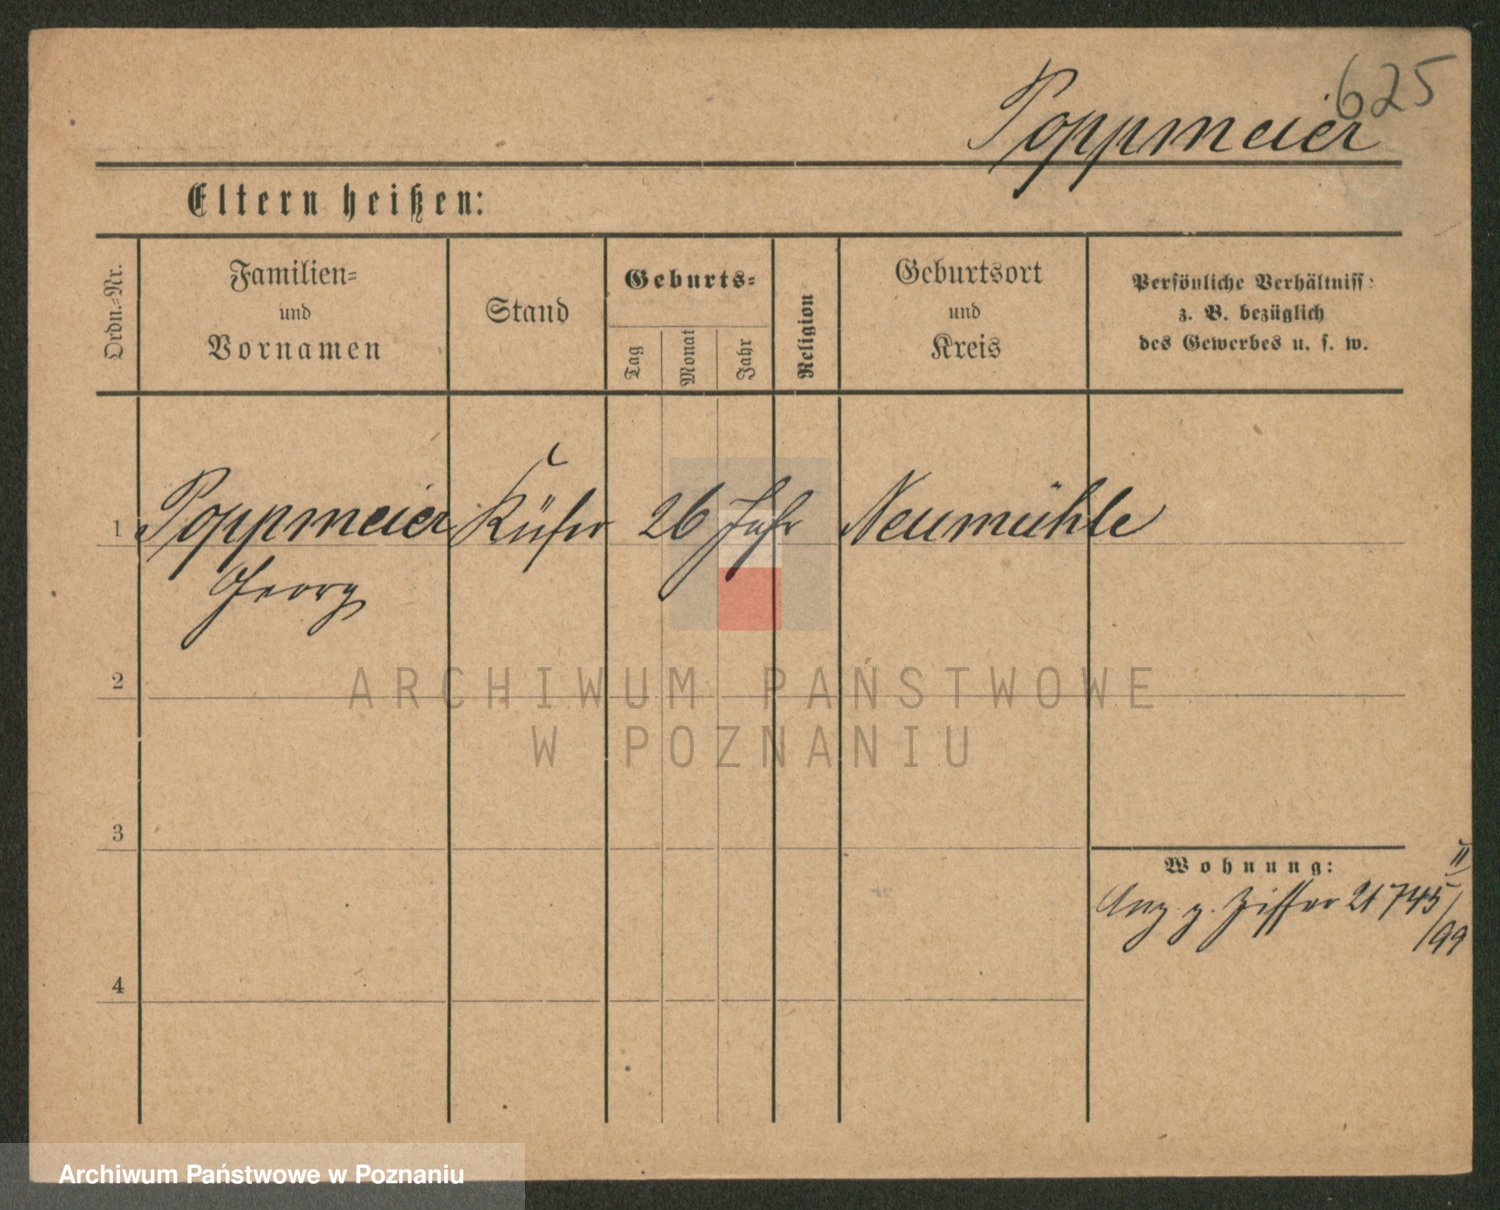 625
Poppmeier
Eltern heißen:
Ordn.-Nr.
Familien-
und
Vornamen
Stand
Geburts-
Tag
Monat
Jahr
Religion
Geburtsort
und
Kreis
Persönliche Verhältniss:
z. B. bezüglich
des Gewerbes u. s. w.
1 Poppmeier Küfer 26 Jahr Neumühle
Georg
2
3
4
Wohnung:
Anz. z. Ziffer 21745 II
/99
ARCHIWUM PAŃSTWOWE
W POZNANIU
Archiwum Państwowe w Poznaniu